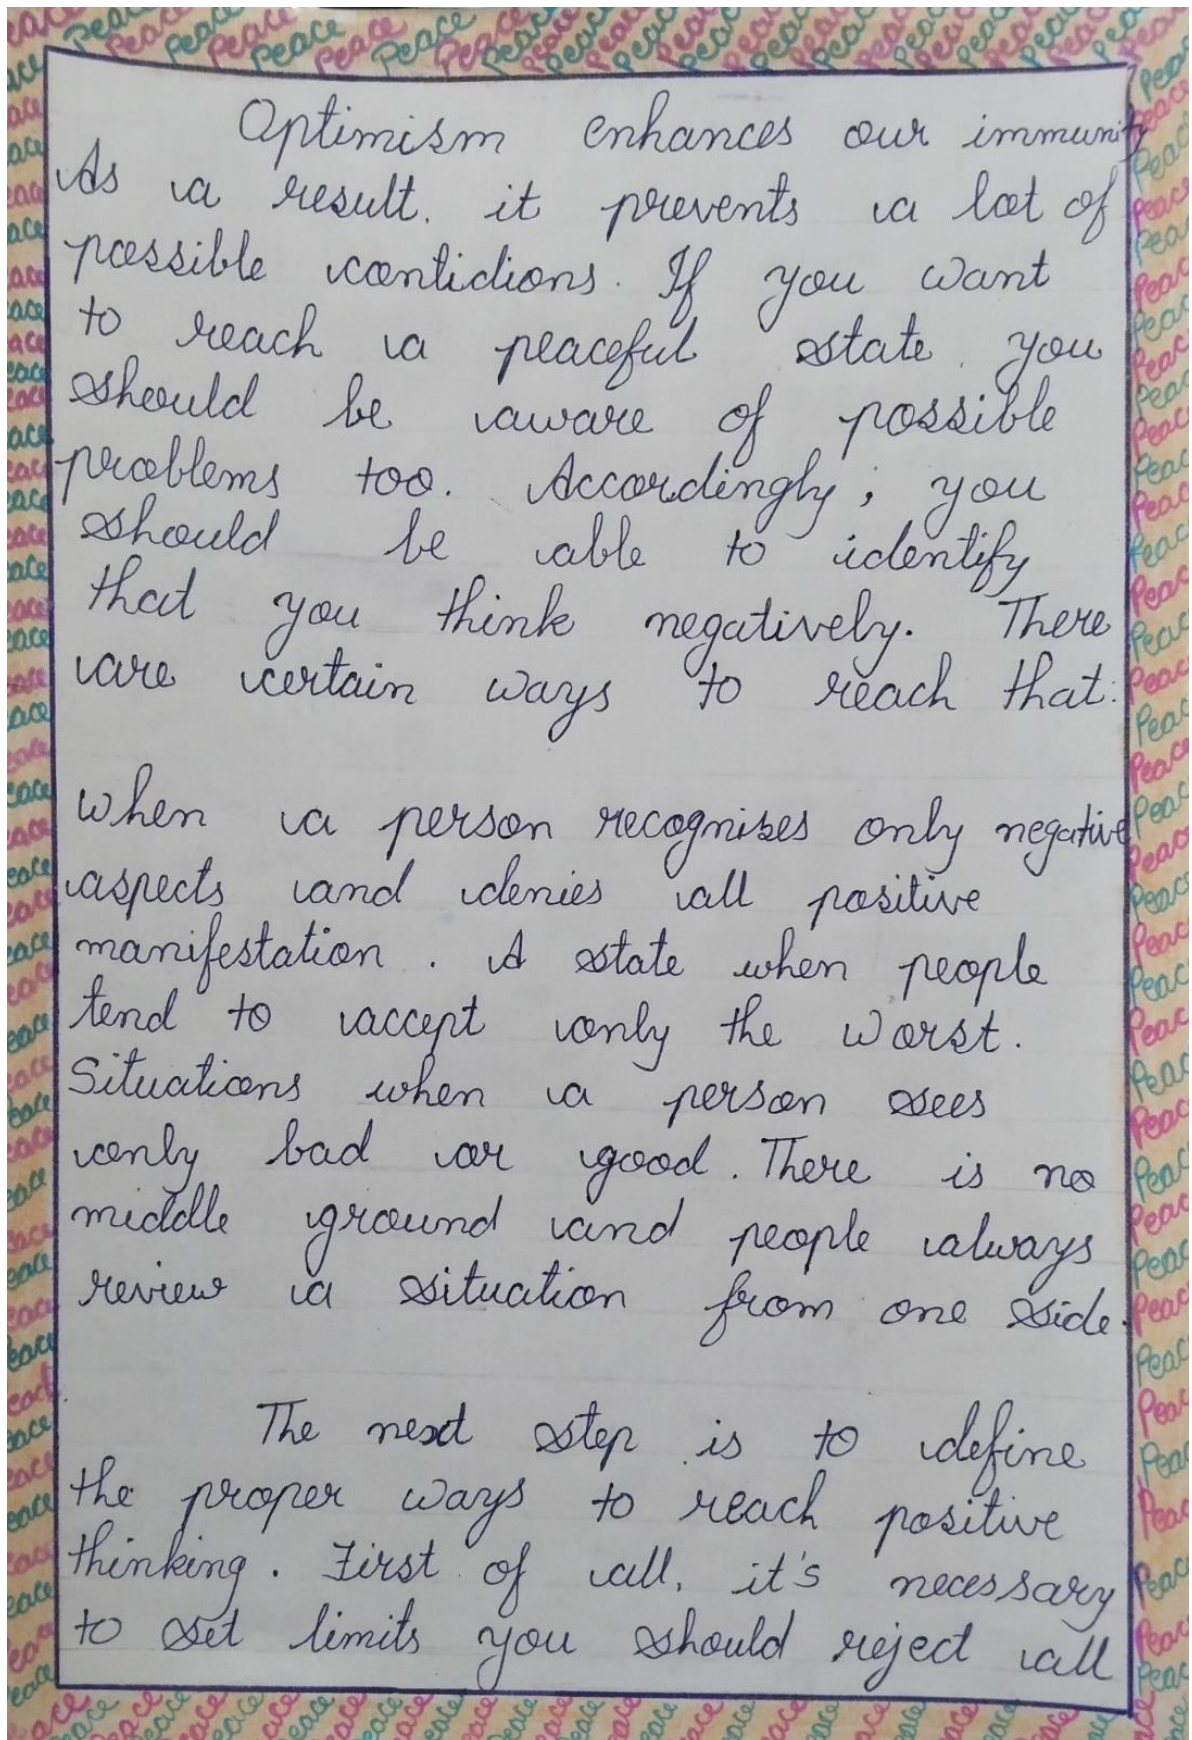 Optimism enhances our immunity
As a result. it prevents a lot of
possible contidions. If you want
to reach a peaceful state you
should be aware of possible
problems too. Accordingly, you
should be able to identify
that you think negatively. There
are certain ways to reach that:
When a person recognizes only negative
aspects and denies all positive
manifestation. A state when people
tend to accept only the worst.
Situations when a person sees
only bad or good. There is no
middle ground and people always
review a situation from one side.
The next step is to define
the proper ways to reach positive
thinking. First of all, it's necessary
to set limits you should reject all
Peace